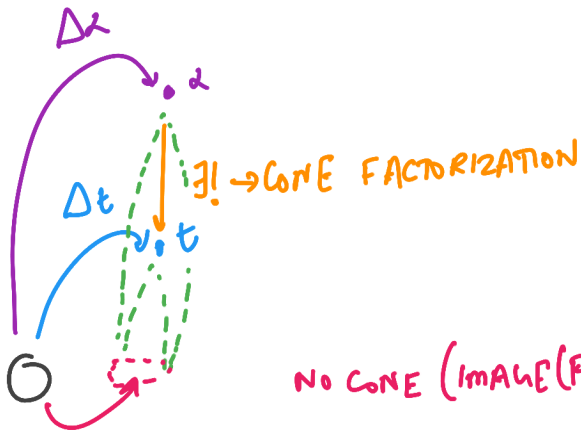 Δα
α
∃! → CONE FACTORIZATION
Δt
t
NO CONE (IMAGE(